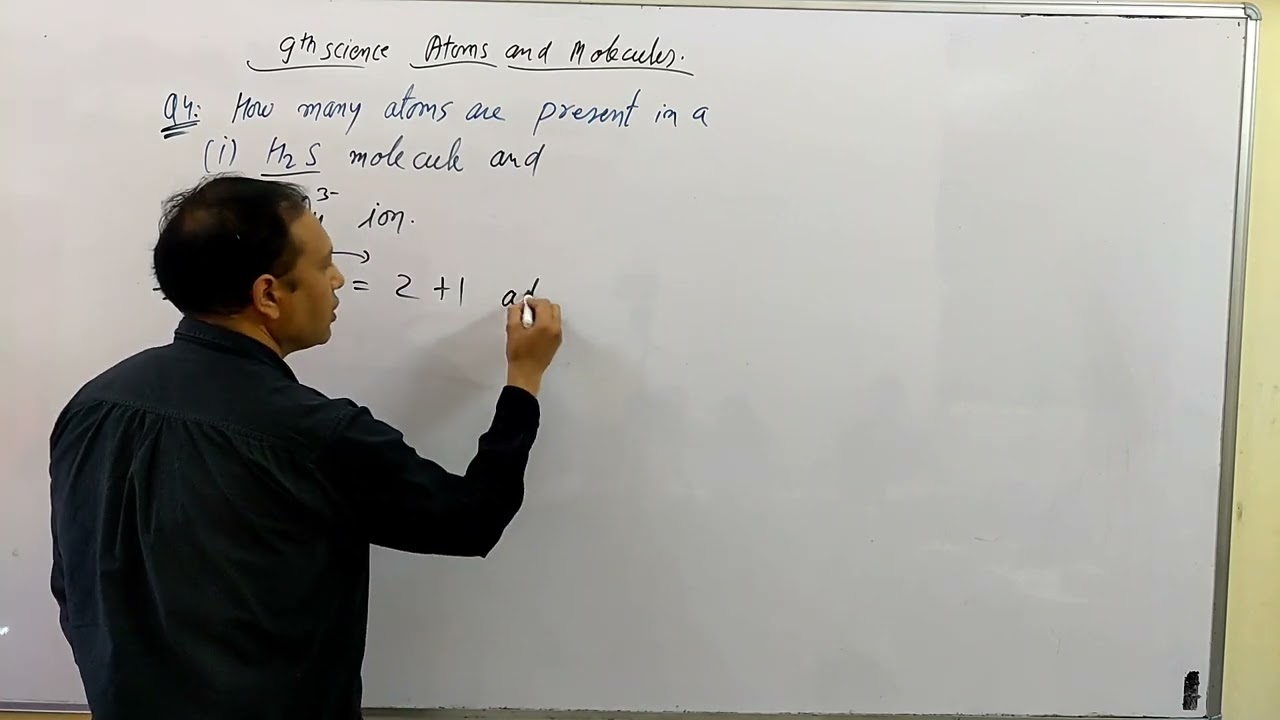 9th science Atoms and Molecules.
Q4: How many atoms are present in a
(i) H2S molecule and
3- ion.
= 2 +1